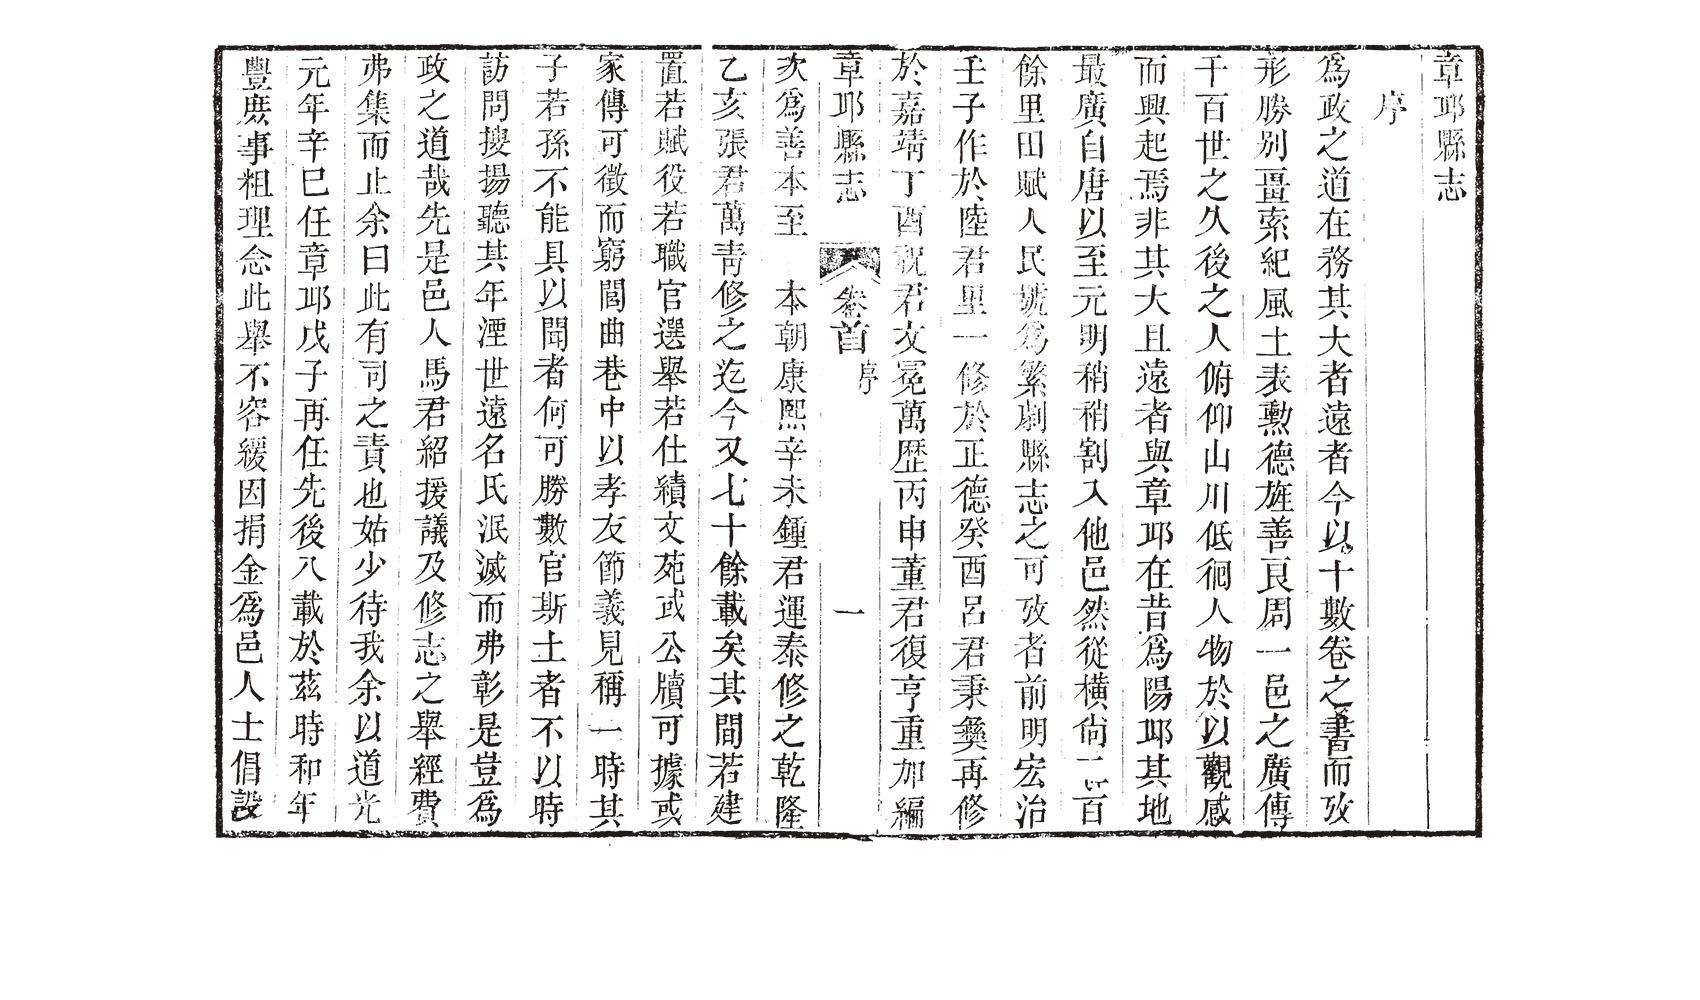 章邱縣志
序
爲政之道在務其大者遠者今以十數卷之書而攷
形勝别畺索紀風土表勲德旌善良周一邑之廣傳
千百世之久後之人俯仰山川低徊人物於以觀感
而興起焉非其大且遠者與章邱在昔爲陽邱其地
最廣自唐以至元明稍稍割入他邑然從橫尙二百
餘里田賦人民號爲繁劇縣志之可攷者前明宏治
壬子作於陸君里一修於正德癸酉呂君秉彝再修
於嘉靖丁酉祝君文冕萬歴丙申董君復亨重加編
章邱縣志
卷首
序
一
次爲善本至　本朝康熙辛未鍾君運泰修之乾隆
乙亥張君萬靑修之迄今又七十餘載矣其間若建
置若賦役若職官選舉若仕績文苑或公牘可據或
家傳可徵而窮閻曲巷中以孝友節義見稱一時其
子若孫不能具以聞者何可勝數官斯土者不以時
訪問搜揚聽其年湮世遠名氏泯滅而弗彰是豈爲
政之道哉先是邑人馬君紹援議及修志之舉經費
弗集而止余曰此有司之責也姑少待我余以道光
元年辛巳任章邱戊子再任先後八載於茲時和年
豐庶事粗理念此舉不容緩因捐金爲邑人士倡設